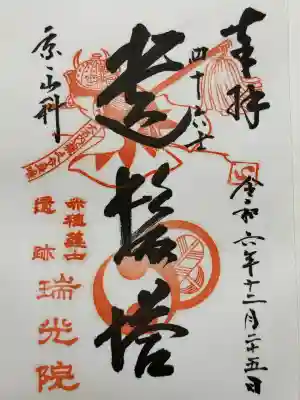 奉拝
四十六士
遺髪塔
京・山科
令和六年十二月二十五日
赤穂義士
遺跡
瑞光院